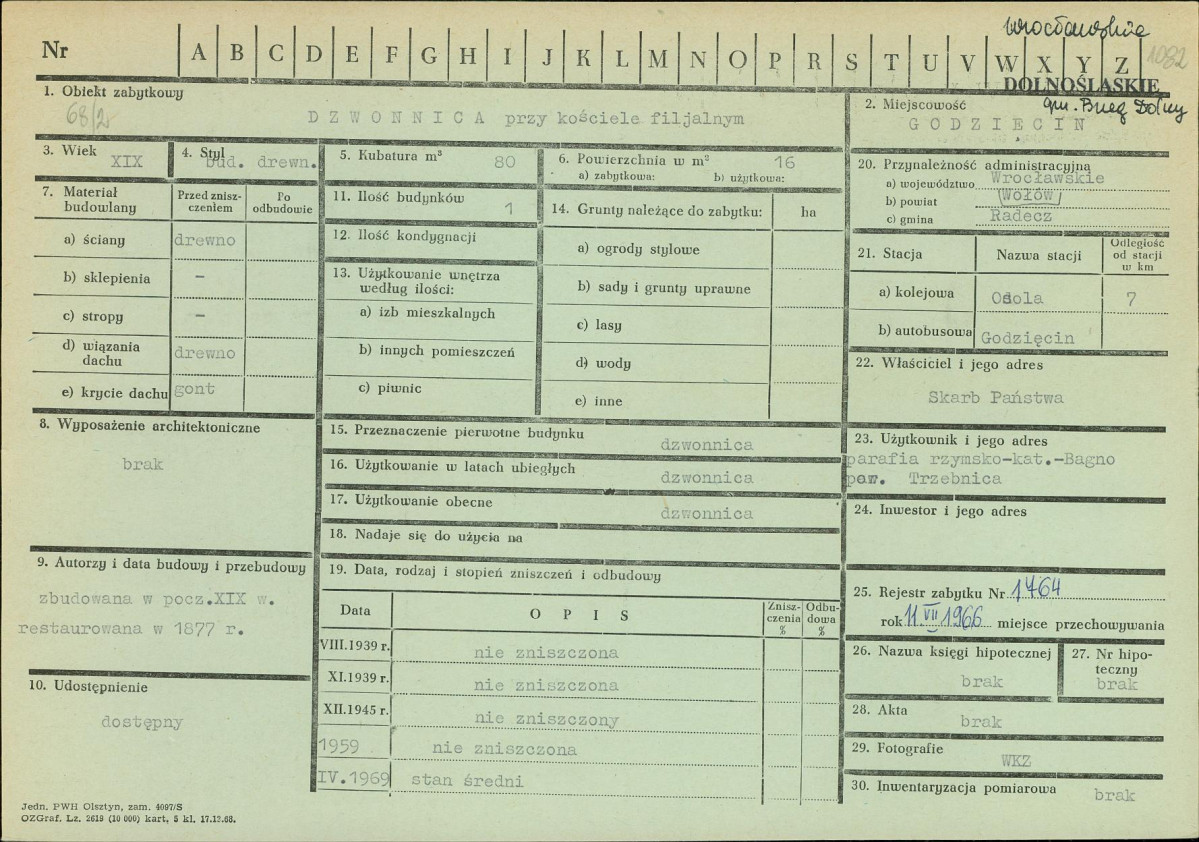 wrocławskie
1082
Nr A B C D E F G H I J K L M N O P R S T U V W X Y Z
DOLNOŚLĄSKIE
gm. Brzeg Dolny
1. Obiekt zabytkowy
68/2
DZWONNICA przy kościele filjalnym
2. Miejscowość
GODZIECIN
3. Wiek XIX
4. Styl bud. drewn.
5. Kubatura m³ 80
6. Powierzchnia w m² 16
a) zabytkowa: b) użytkowa:
7. Materiał budowlany
Przed znisz-
czeniem
Po
odbudowie
a) ściany drewno
b) sklepienia –
c) stropy –
d) wiązania
dachu drewno
e) krycie dachu gont
8. Wyposażenie architektoniczne
brak
9. Autorzy i data budowy i przebudowy
zbudowana w pocz.XIX w.
restaurowana w 1877 r.
10. Udostępnienie
dostępny
11. Ilość budynków 1
12. Ilość kondygnacji
13. Użytkowanie wnętrza
według ilości:
a) izb mieszkalnych
b) innych pomieszczeń
c) piwnic
14. Grunty należące do zabytku: ha
a) ogrody stylowe
b) sady i grunty uprawne
c) lasy
d) wody
e) inne
15. Przeznaczenie pierwotne budynku
dzwonnica
16. Użytkowanie w latach ubiegłych
dzwonnica
17. Użytkowanie obecne
dzwonnica
18. Nadaje się do użycia na
19. Data, rodzaj i stopień zniszczeń i odbudowy
Data OPIS
Znisz-
czenia
%
Odbu-
dowa
%
VIII.1939 r. nie zniszczona
XI.1939 r. nie zniszczona
XII.1945 r. nie zniszczony
1959 nie zniszczona
IV.1969 stan średni
20. Przynależność administracyjna
a) województwo Wrocławskie
b) powiat Wołów
c) gmina Radecz
21. Stacja Nazwa stacji
Odległość
od stacji
w km
a) kolejowa Osola 7
b) autobusowa Godzięcin
22. Właściciel i jego adres
Skarb Państwa
23. Użytkownik i jego adres
parafia rzymsko-kat.-Bagno
pow. Trzebnica
24. Inwestor i jego adres
25. Rejestr zabytku Nr 1464
rok 11.VII 1966 miejsce przechowywania
26. Nazwa księgi hipotecznej
brak
27. Nr hipo-
teczny
brak
28. Akta
brak
29. Fotografie
WKZ
30. Inwentaryzacja pomiarowa
brak
Jedn. PWH Olsztyn, zam. 4097/S
OZGraf. Lz. 2619 (10 000) kart. 5 kl. 17.12.68.